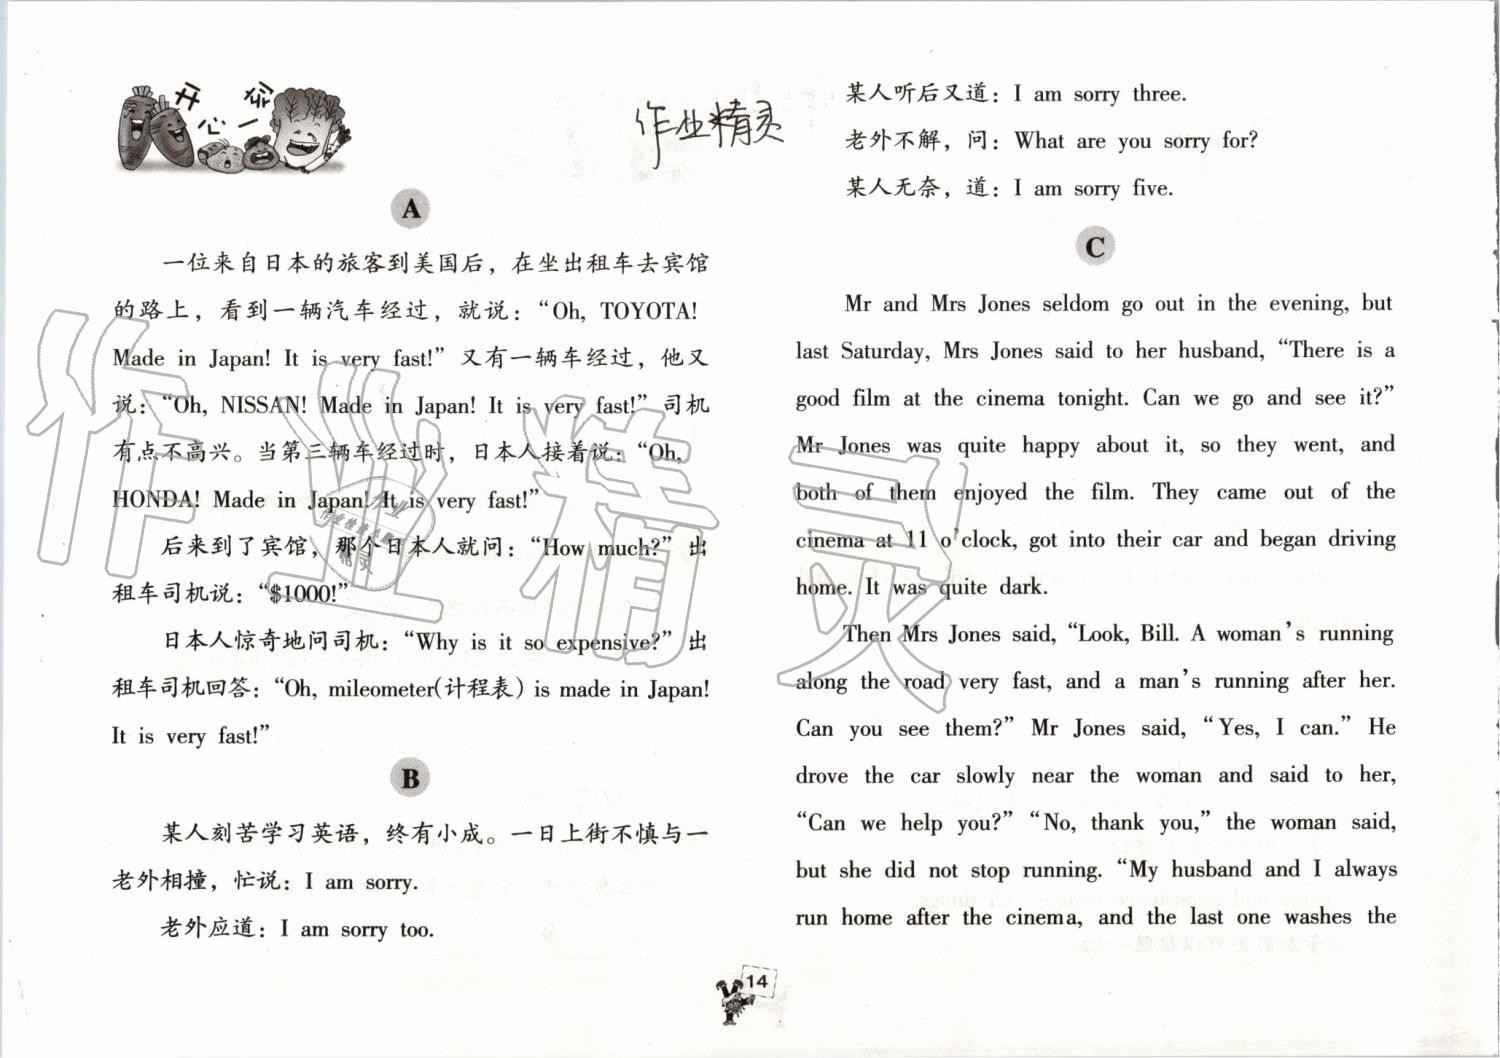 开心一杂
作业精灵
A
一位来自日本的旅客到美国后，在坐出租车去宾馆
的路上，看到一辆汽车经过，就说：“Oh, TOYOTA!
Made in Japan! It is very fast!” 又有一辆车经过，他又
说：“Oh, NISSAN! Made in Japan! It is very fast!” 司机
有点不高兴。当第三辆车经过时，日本人接着说：“Oh,
HONDA! Made in Japan! It is very fast!”
后来到了宾馆，那个日本人就问：“How much?” 出
租车司机说：“$1000!”
日本人惊奇地问司机：“Why is it so expensive?” 出
租车司机回答：“Oh, mileometer(计程表) is made in Japan!
It is very fast!”
B
某人刻苦学习英语，终有小成。一日上街不慎与一
老外相撞，忙说：I am sorry.
老外应道：I am sorry too.
某人听后又道：I am sorry three.
老外不解，问：What are you sorry for?
某人无奈，道：I am sorry five.
C
Mr and Mrs Jones seldom go out in the evening, but
last Saturday, Mrs Jones said to her husband, “There is a
good film at the cinema tonight. Can we go and see it?”
Mr Jones was quite happy about it, so they went, and
both of them enjoyed the film. They came out of the
cinema at 11 o’clock, got into their car and began driving
home. It was quite dark.
Then Mrs Jones said, “Look, Bill. A woman’s running
along the road very fast, and a man’s running after her.
Can you see them?” Mr Jones said, “Yes, I can.” He
drove the car slowly near the woman and said to her,
“Can we help you?” “No, thank you,” the woman said,
but she did not stop running. “My husband and I always
run home after the cinema, and the last one washes the
14
作业精灵